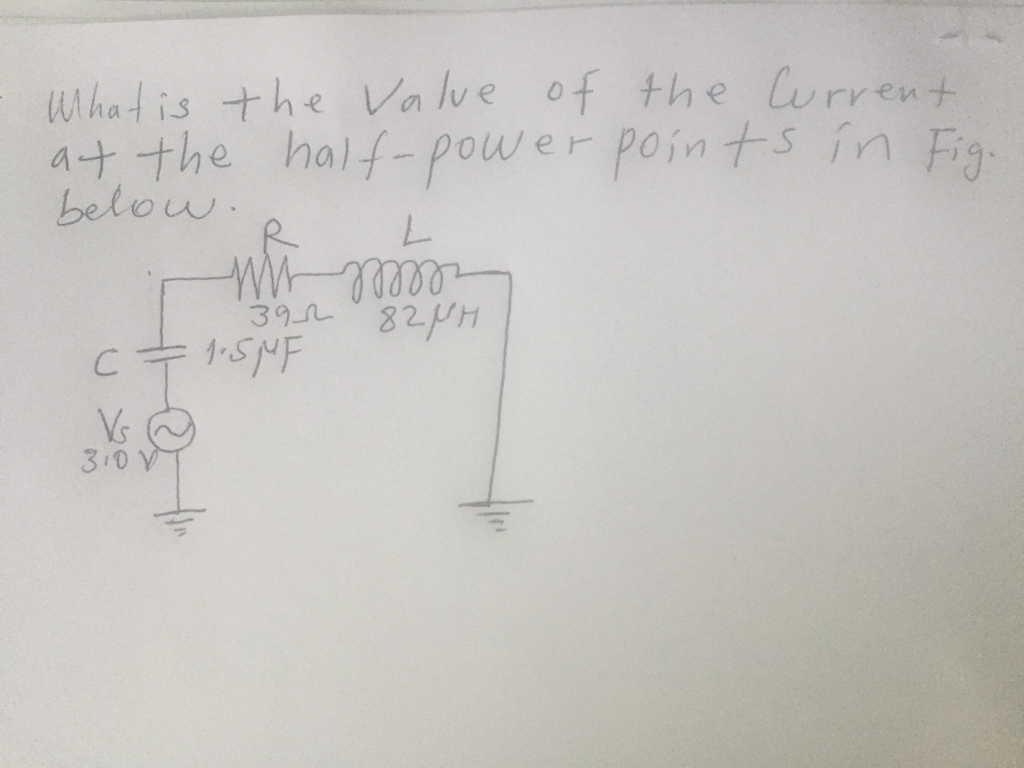 What is the Value of the Current
at the half-power points in Fig.
below.
R L
39Ω 82μH
C 1.5μF
Vs
3.0 V